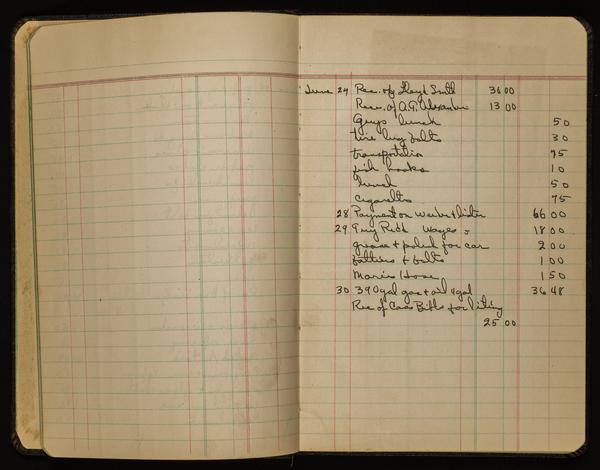 June 24 Rec. of Floyd Smith 36 00
Rec. of O.G. Alexander 13 00
Guy's lunch 50
tire lug bolts 30
transportation 95
fish hooks 10
lunch 50
cigarettes 75
28 Payment on 66 00
29 Guy Redd Wages 18 00
grease & polish for car 2 00
& bolts 1 00
Mans Hose 1 50
30 390 gal gas & oil 4 gal 36 48
Rec of Cass Bibbs for
25 00